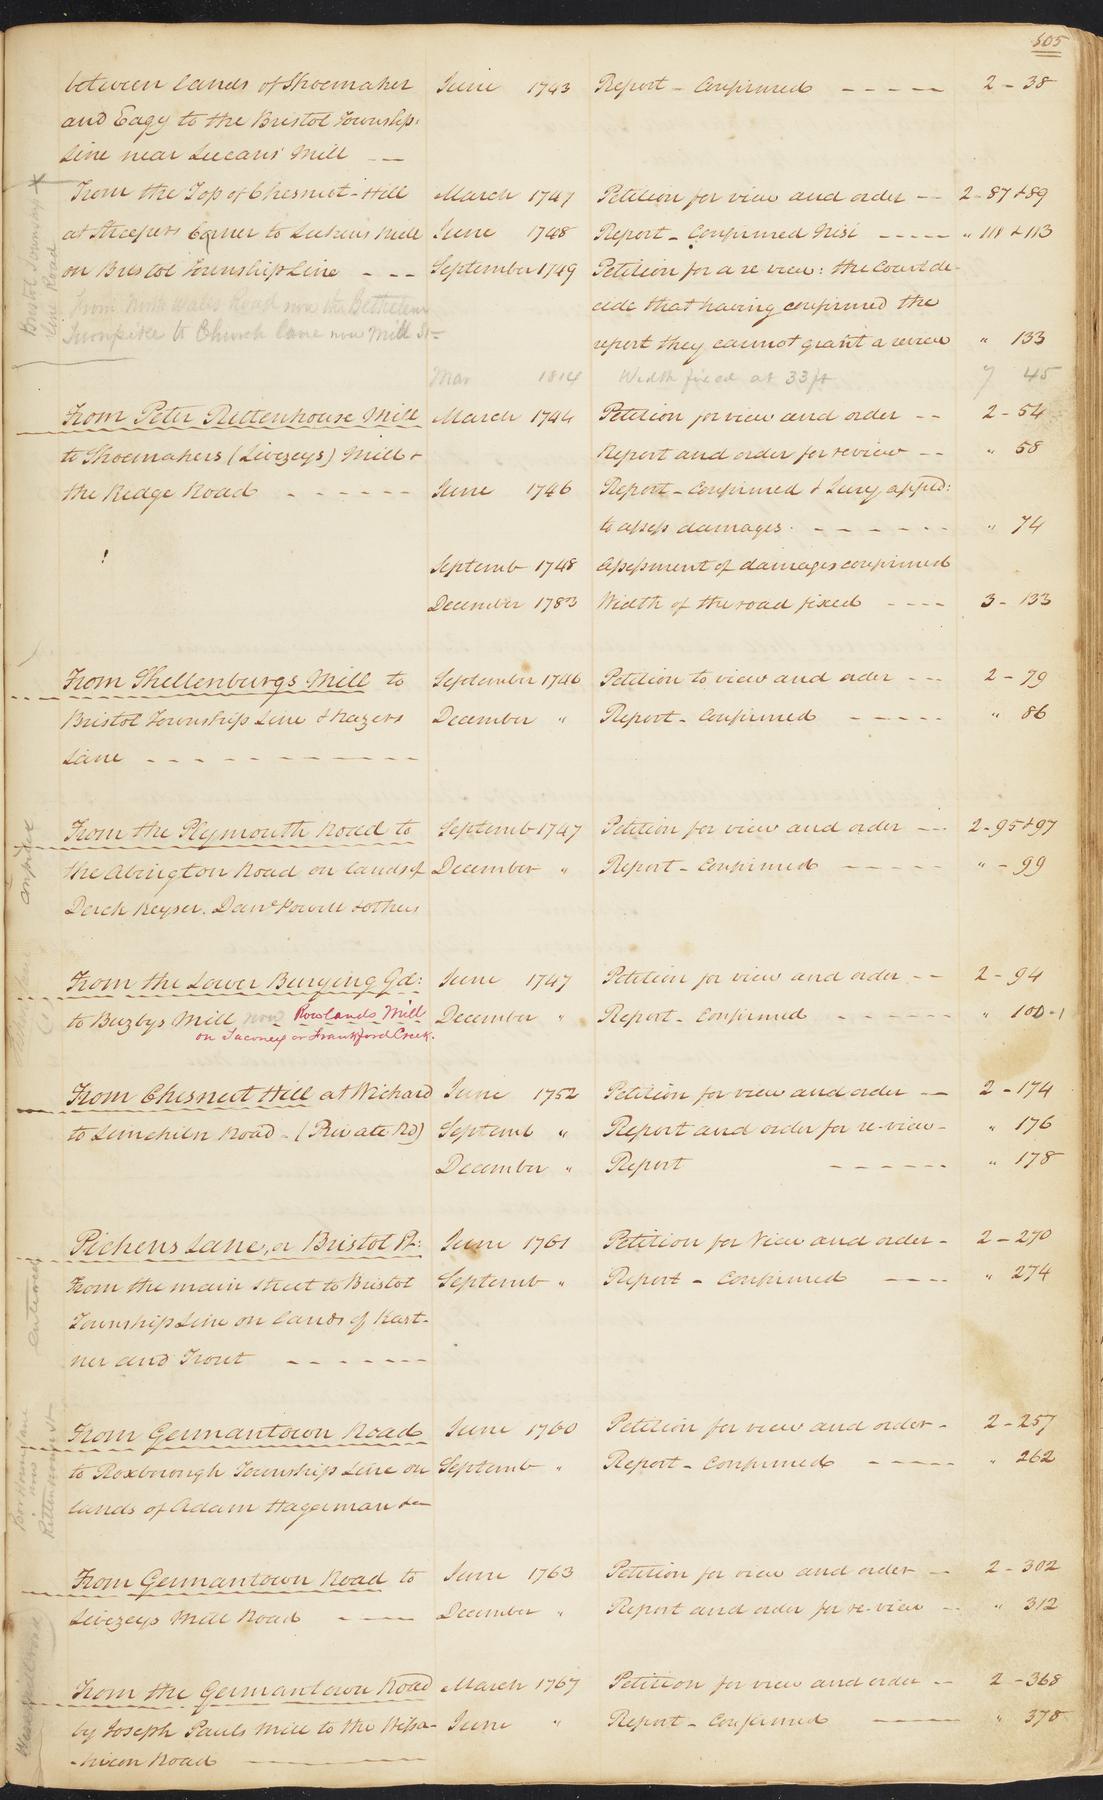 505
between lands of Shoemaker June 1743 Report - Confirmed - - - - - 2 - 38
and Eagy to the Bristol Township
Line near Lucans Mill - -
From the Top of Chesnut-Hill March 1747 Petition for view and order - - 2 - 87 & 89
at Streepers Corner to Lukens Mill June 1748 Report - Confirmed Nisi - - - - - " 111 & 113
on Bristol Township Line - - - September 1749 Petition for a re view: the Court de-
cide that having confirmed the
From North Wales Road now the Bethlehem
Turnpike to Church lane now Mill St -
report they cannot grant a review " 133
Mar 1814 Width fixed at 33 ft 7 45
From Peter Rittenhouse Mill March 1744 Petition for view and order - - 2 - 54
to Shoemakers (Livezeys) Mill & Report and order for review - - " 58
the Ridge Road - - - - - - June 1746 Report - Confirmed & Jury apped:
to assess damages - - - - - - " 74
Septemb 1748 Assessment of damages confirmed
December 1783 Width of the road fixed - - - - 3 - 133
From Shellenburgs Mill to September 1746 Petition to view and order - - - 2 - 79
Bristol Township Line & Kazers December " Report - Confirmed - - - - - " 86
Lane - - - - - - - - - - -
From the Plymouth Road to Septemb 1747 Petition for view and order - - - 2 - 95 & 97
the Abington Road on lands of December " Report - Confirmed - - - - - " - 99
Derick Keyser. Danl Powell & others
From the Lower Burying Gd: June 1747 Petition for view and order - - 2 - 94
to Buzbys Mill now Rowlands Mill December " Report - Confirmed - - - - - - " 100-1
on Taconey or Frankford Creek.
From Chesnut Hill at Wichard June 1752 Petition for view and order - - 2 - 174
to Limekiln Road - (Private Rd) Septemb " Report and order for re-view - " 176
December " Report - - - - - - " 178
Pickens Lane, or Bristol St: June 1761 Petition for View and order - 2 - 270
From the main street to Bristol Septemb " Report - Confirmed - - - - " 274
Township Line on lands of Kast-
ner and Trout - - - - - - -
From Germantown Road June 1760 Petition for view and order - 2 - 257
to Roxborough Township Line on Septemb " Report - Confirmed - - - - - " 262
lands of Adam Hagerman &c
From Germantown Road to June 1763 Petition for view and order - - 2 - 302
Livezeys Mill Road - - - December " Report and order for re-view - - " 312
From the Germantown Road March 1767 Petition for view and order - - 2 - 368
by Joseph Pauls Mill to the Wissa- June " Report - Confirmed - - - " 378
-hicon Road
Bristol Township
Line Road
Rittenhouse St